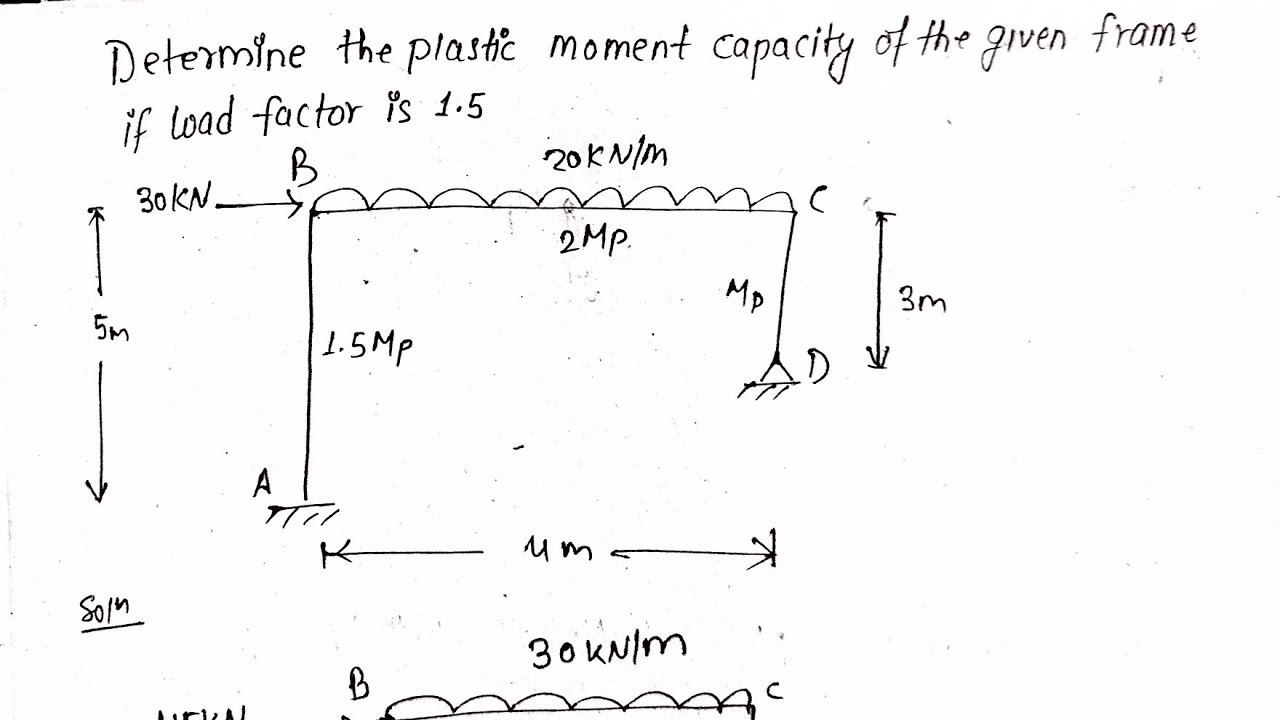 Determine the plastic moment capacity of the given frame
if load factor is 1.5
B
20KN/m
30KN
C
2Mp.
Mp
3m
5m
1.5Mp
D
A
4m
Soln
30KN/m
B
C
45KN